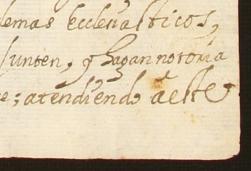 demas ecclesiasticos,
junten, q hagan notoria
e; atendiendo à este